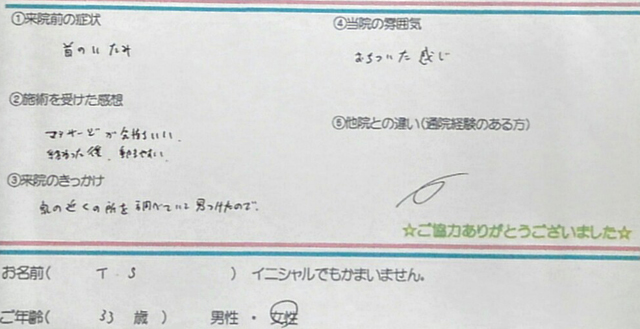 ①来院前の症状
首のいたみ
②施術を受けた感想
マッサージが気持ちいい。
終わった後、動きやすい。
③来院のきっかけ
家の近くの所を調べていて見つけたので。
④当院の雰囲気
おちついた感じ
⑤他院との違い(通院経験のある方)
☆ご協力ありがとうございました☆
お名前( T.S ) イニシャルでもかまいません。
ご年齢( 33 歳 ) 男性 ・ 女性